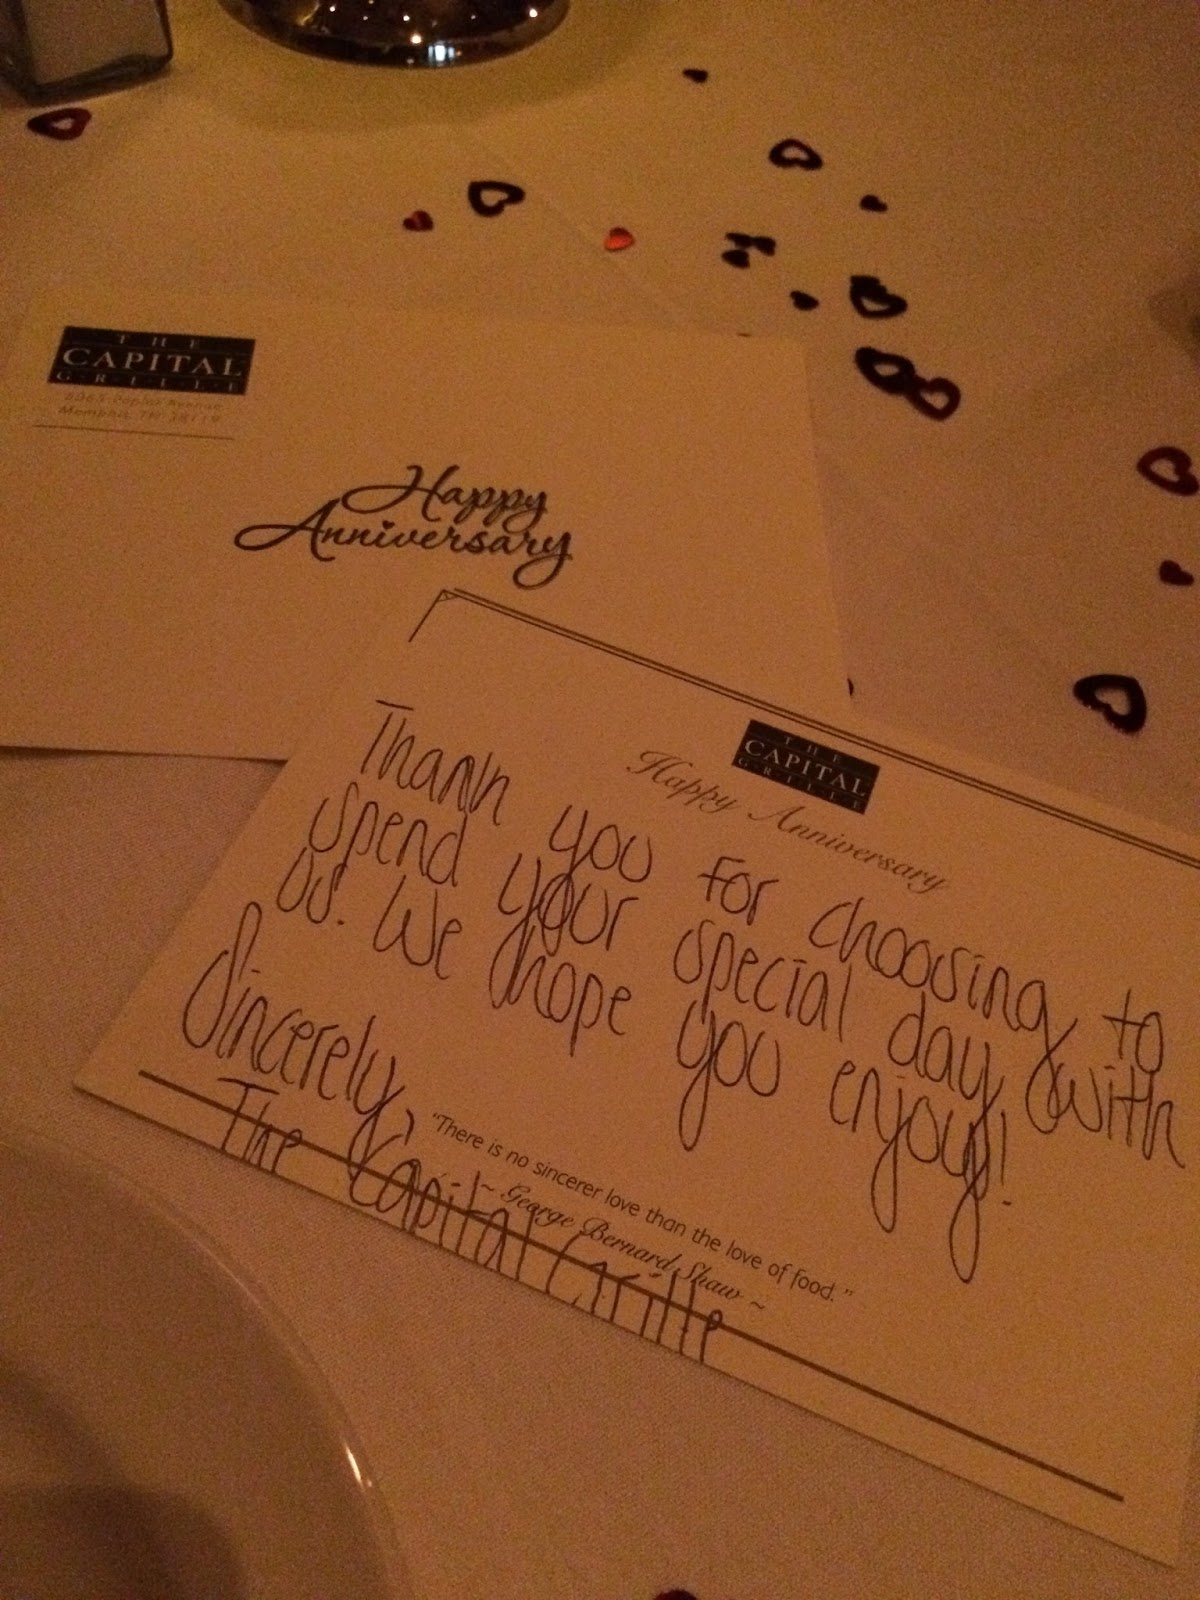 THE
CAPITAL
GRILLE
Poplar Avenue
Memphis, TN 38119
Happy
Anniversary
THE
CAPITAL
GRILLE
Happy Anniversary
Thank you for choosing to
spend your special day with
us. We hope you enjoy!
Sincerely,
The Capital Grille
"There is no sincerer love than the love of food."
~ George Bernard Shaw ~